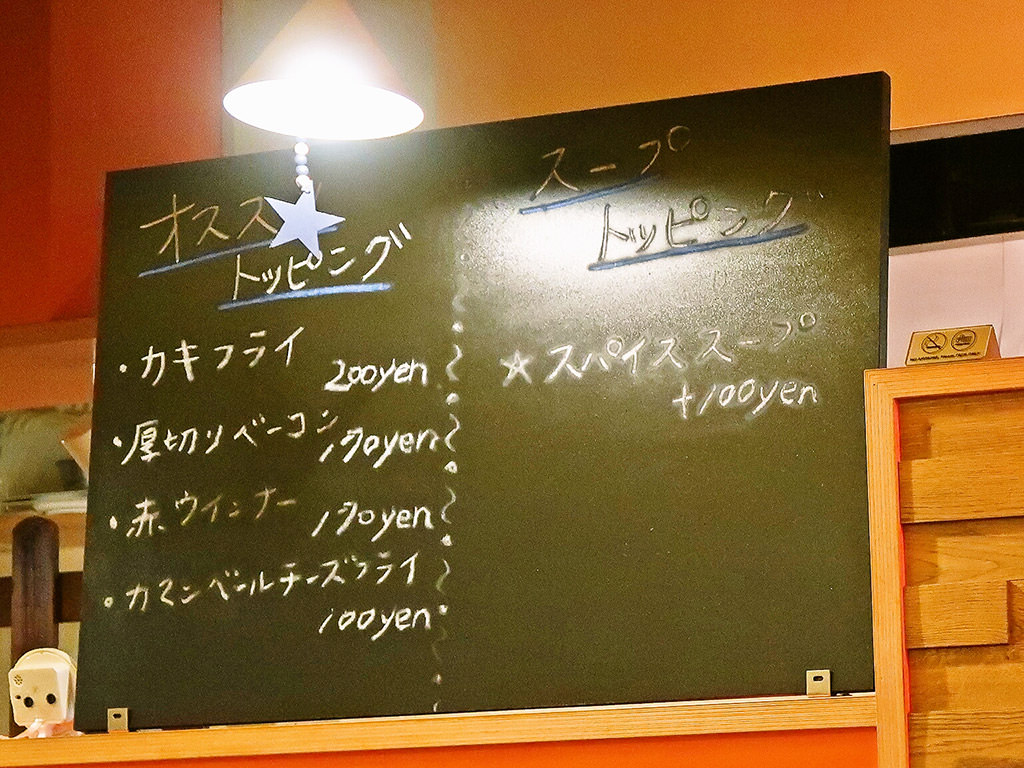 オスス
トッピング
・カキフライ
200yen
・厚切りベーコン
170yen
・赤ウインナー
170yen
・カマンベールチーズフライ
100yen
スープ
トッピング
☆スパイススープ
+100yen